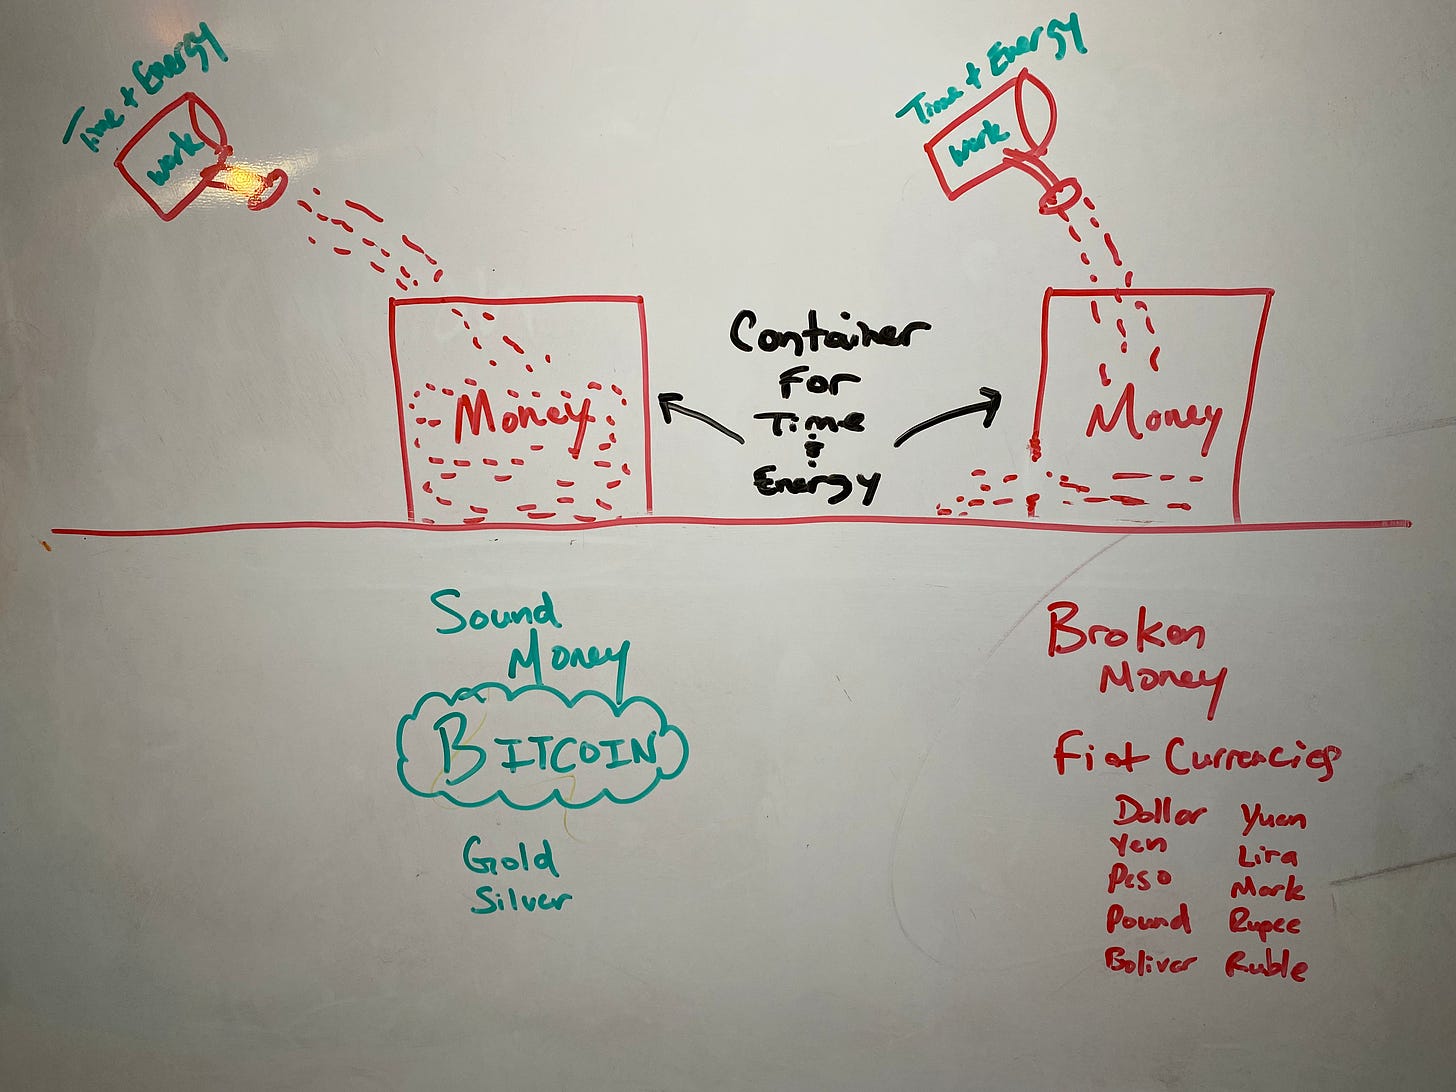 Time + Energy
Work
Time + Energy
Work
Money
Container
For
Time
&
Energy
Money
Sound
Money
BITCOIN
Gold
Silver
Broken
Money
Fiat Currencies
Dollar Yuan
Yen Lira
Peso Mark
Pound Rupee
Boliver Ruble